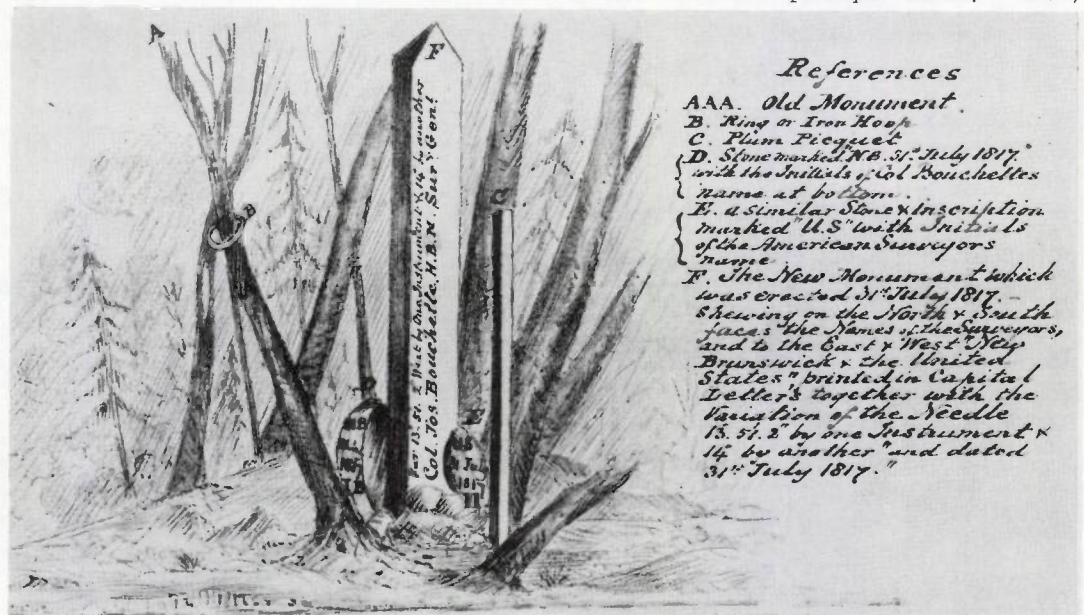 A
F
B
C
D
E
Var 13. 51. 2 West by One Instrument & 14° by another
Col. Jos. Bouchelle. H.B.M. Surv. Genl
NB
J B
U S
1817
References
AAA. Old Monument.
B. Ring or Iron Hoop
C. Plum Picquet
D. Stone marked "N.B. 31st July 1817."
with the Initials of Col Bouchettes
name at bottom.
E. a similar Stone & Inscription
marked "U.S" with Initials
of the American Surveyors
name
F. The New Monument which
was erected 31st July 1817. –
shewing on the North & South
faces the Names of the Surveyors,
and to the East & West "New
Brunswick & the United
States" printed in Capital
Letter's together with the
Variation of the Needle
13. 51. 2" by one Instrument &
14° by another" and dated
31st July 1817."